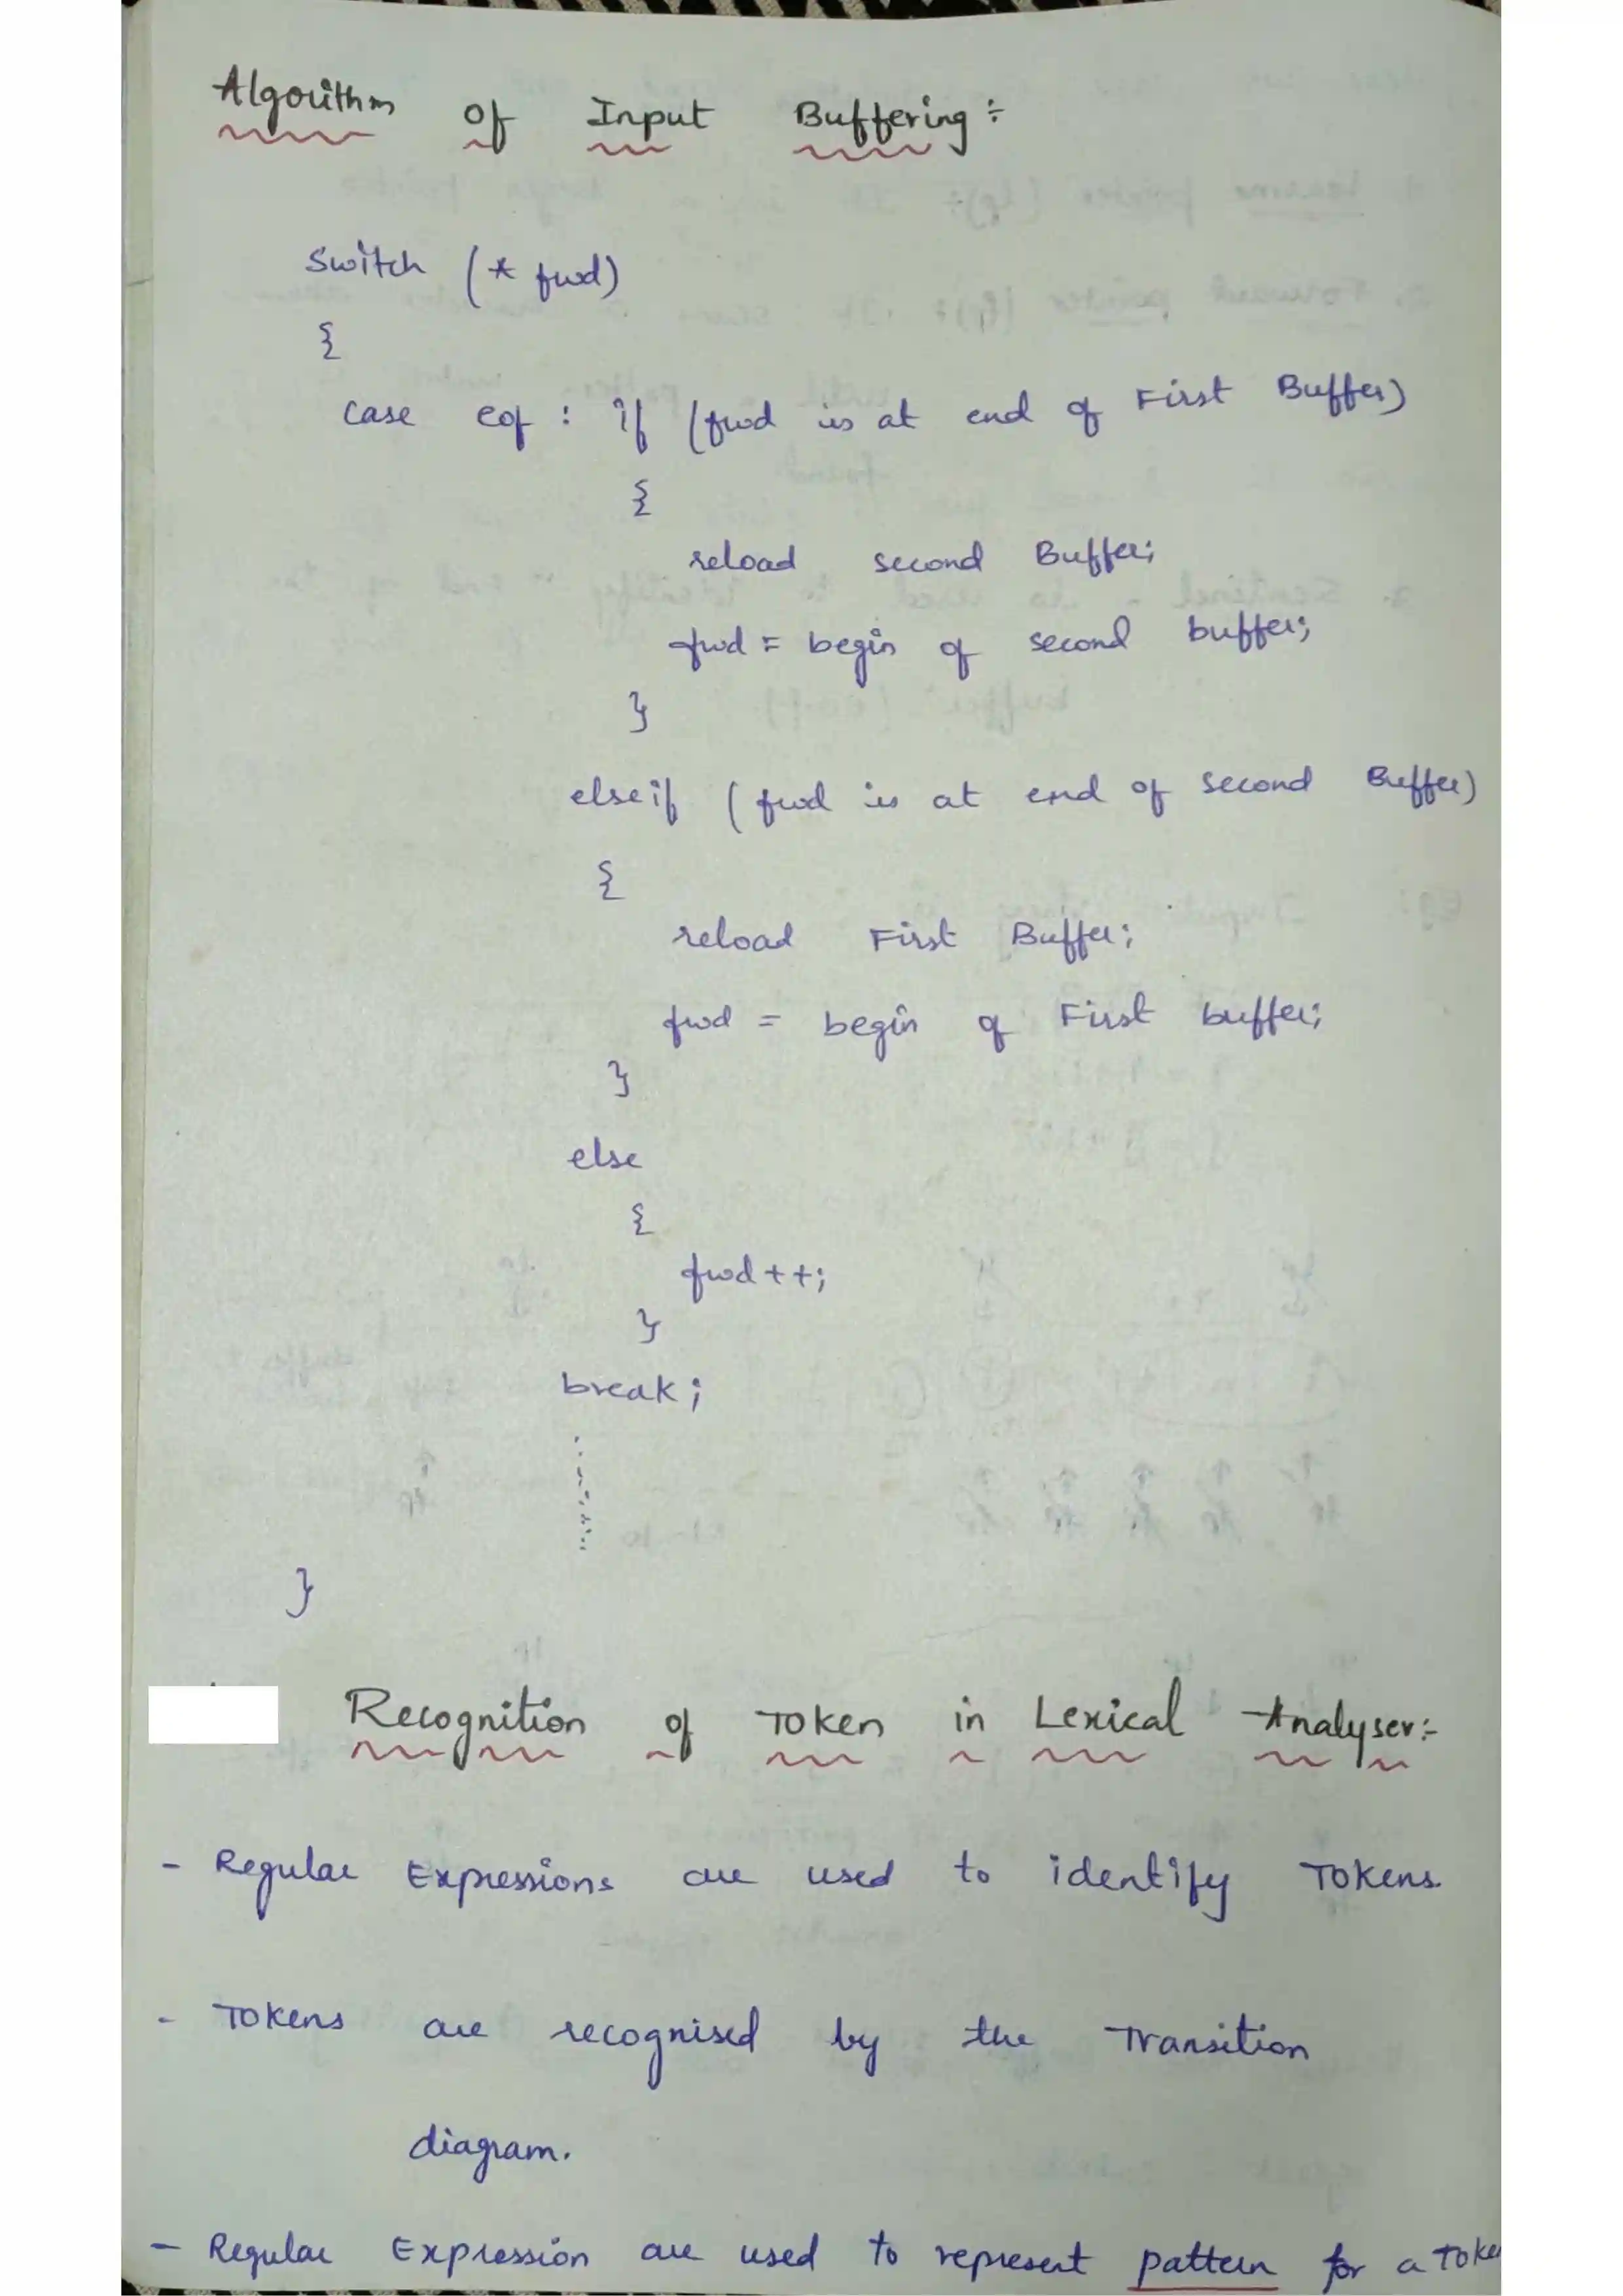 Algorithm of Input Buffering :-
Switch (* fwd)
{
case eof : if (fwd is at end of First Buffer)
{
reload second Buffer;
fwd = begin of second buffer;
}
elseif (fwd is at end of second Buffer)
{
reload First Buffer;
fwd = begin of First buffer;
}
else
{
fwd++;
}
break;
}
Recognition of Token in Lexical Analyser:-
- Regular Expressions are used to identify Tokens.
- Tokens are recognised by the Transition
diagram.
- Regular Expression are used to represent pattern for a Toke